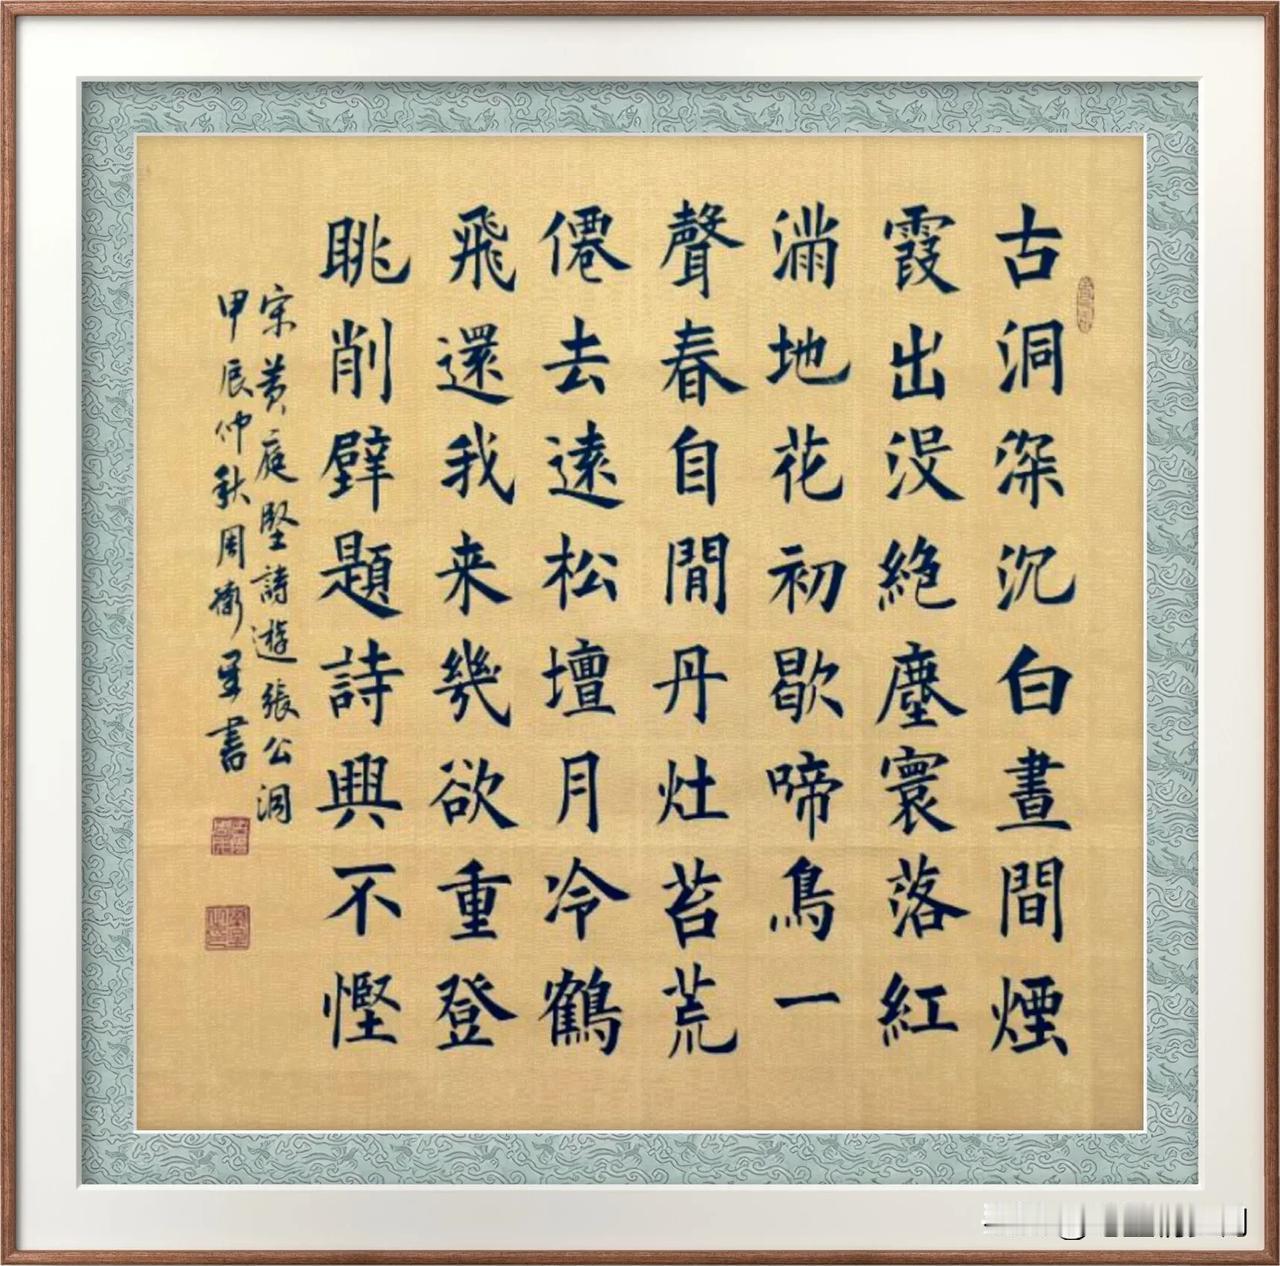 古洞深沉白晝間煙
霞出没絶塵寰落紅
滿地花初歇啼鳥一
聲春自閒丹灶苔荒
僊去遠松壇月冷鶴
飛還我来幾欲重登
眺削壁題詩興不慳
宋黄庭堅詩遊張公洞
甲辰仲秋周衛書